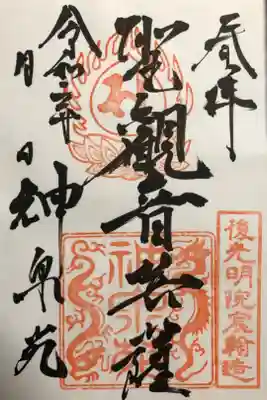 奉拝
聖観音菩薩
令和二年
月 日
神泉苑
復光明院宸翰造
神泉苑